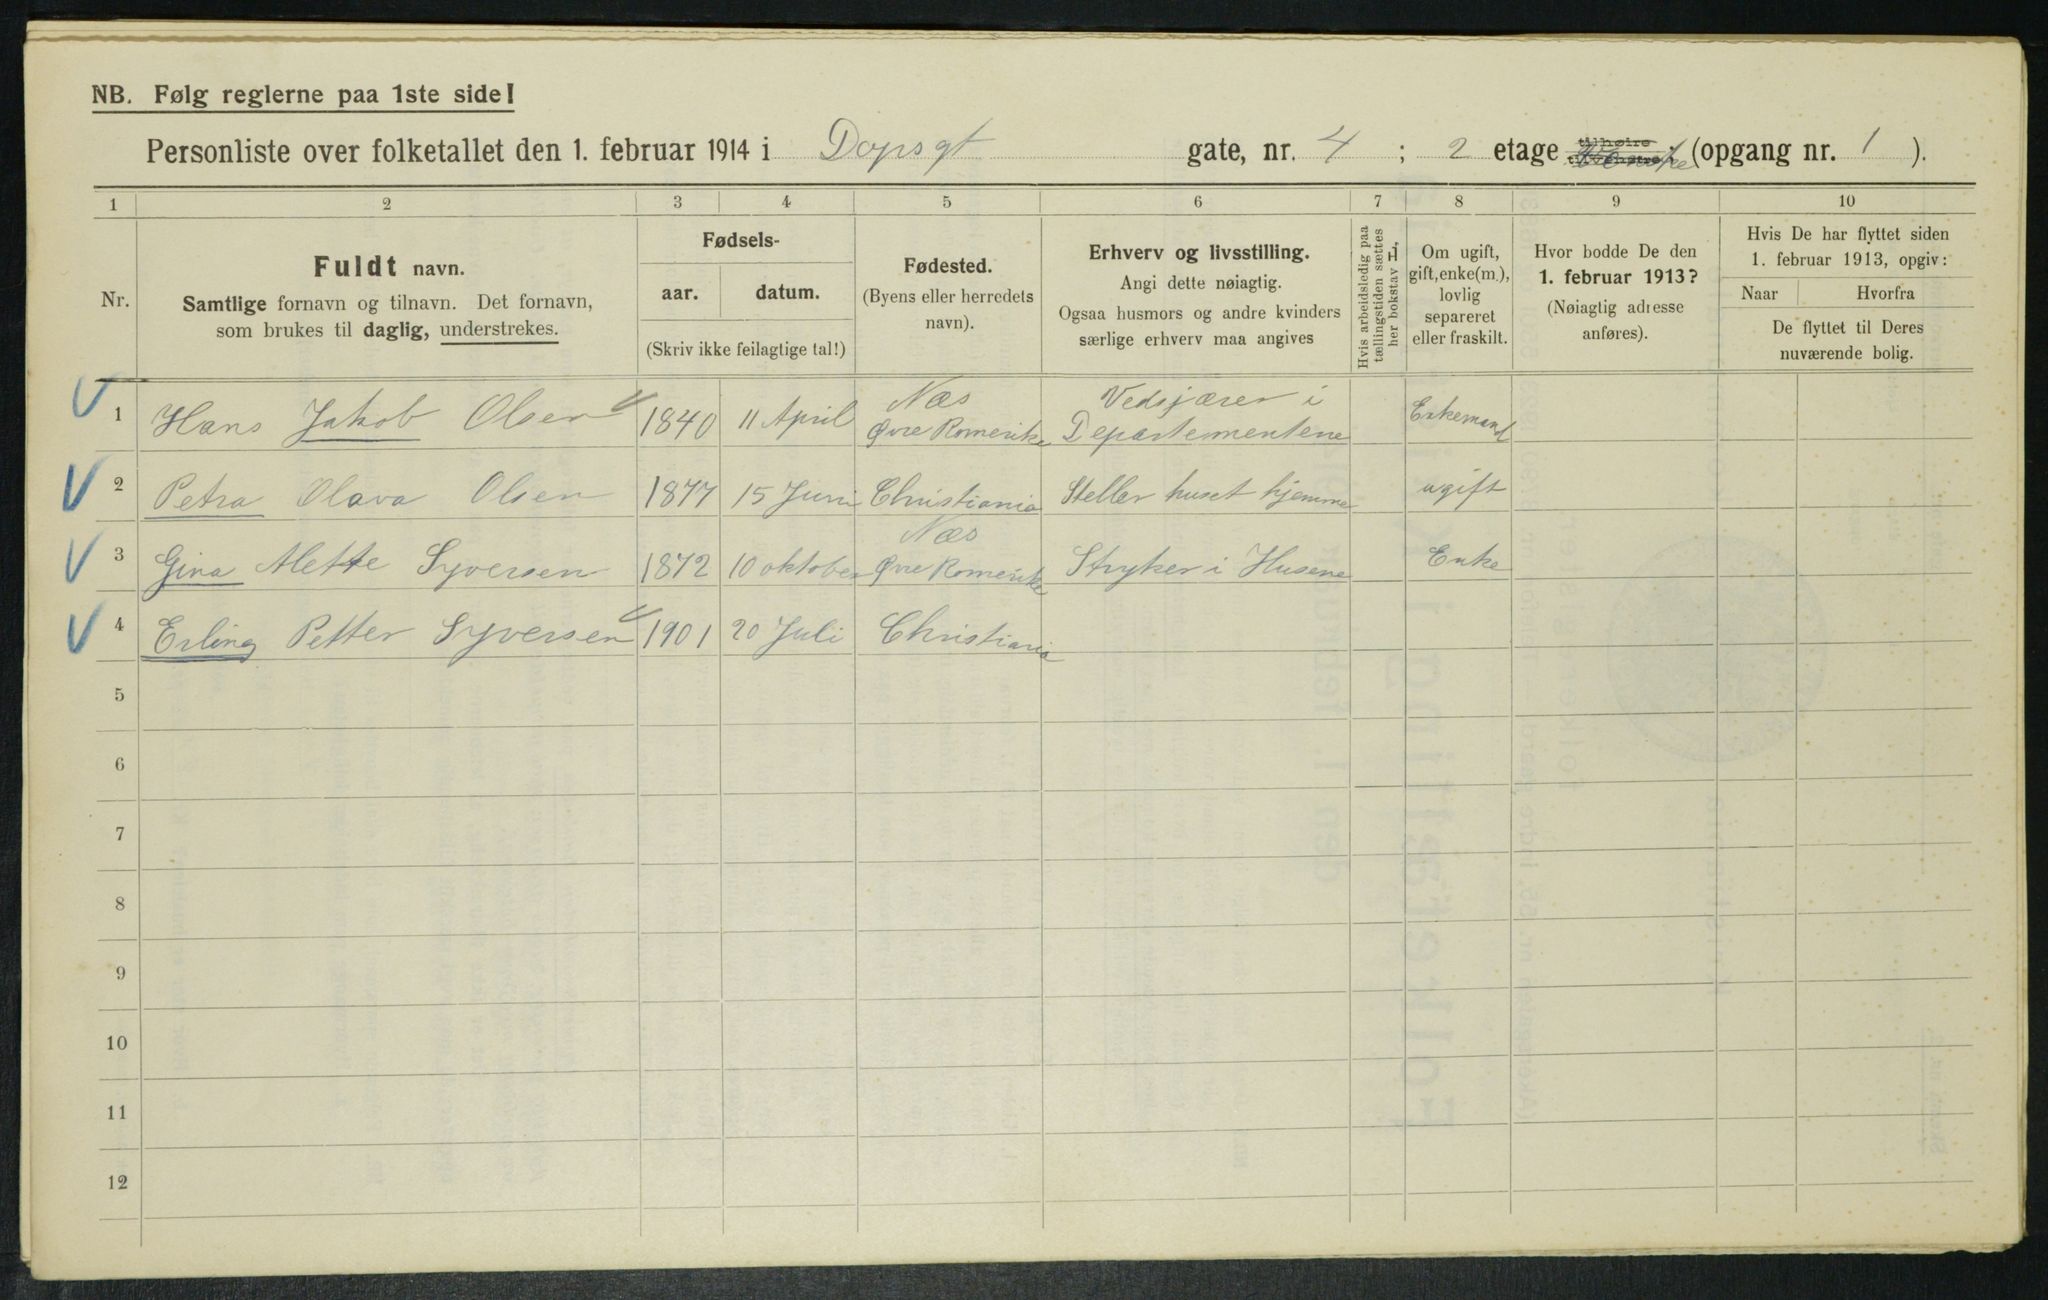 NB. Følg reglerne paa 1ste side!
Personliste over folketallet den 1. februar 1914 i Dopsgt gate, nr. 4 ; 2 etage tilhøire (opgang nr. 1 ).
1 2 3 4 5 6 7 8 9 10
Nr.
Fuldt navn.
Samtlige fornavn og tilnavn. Det fornavn,
som brukes til daglig, understrekes.
Fødsels-
aar. datum.
(Skriv ikke feilagtige tal!)
Fødested.
(Byens eller herredets
navn).
Erhverv og livsstilling.
Angi dette nøiagtig.
Ogsaa husmors og andre kvinders
særlige erhverv maa angives
Hvis arbeidsledig paa
tællingstiden sættes
her bokstav L,
Om ugift,
gift, enke(m.),
lovlig
separeret
eller fraskilt.
Hvor bodde De den
1. februar 1913?
(Nøiagtig adresse
anføres).
Hvis De har flyttet siden
1. februar 1913, opgiv:
Naar Hvorfra
De flyttet til Deres
nuværende bolig.
1 Hans Jakob Olsen 1840 11 April Næs Øvre Romerike Vedsjærer i Departementene Enkemand
2 Petra Olava Olsen 1877 15 Juni Christiania Steller huset hjemme ugift
3 Gina Alette Syversen 1872 10 oktober Næs Øvre Romerike Stryker i Husene Enke
4 Erling Petter Syversen 1901 20 Juli Christiania
5
6
7
8
9
10
11
12